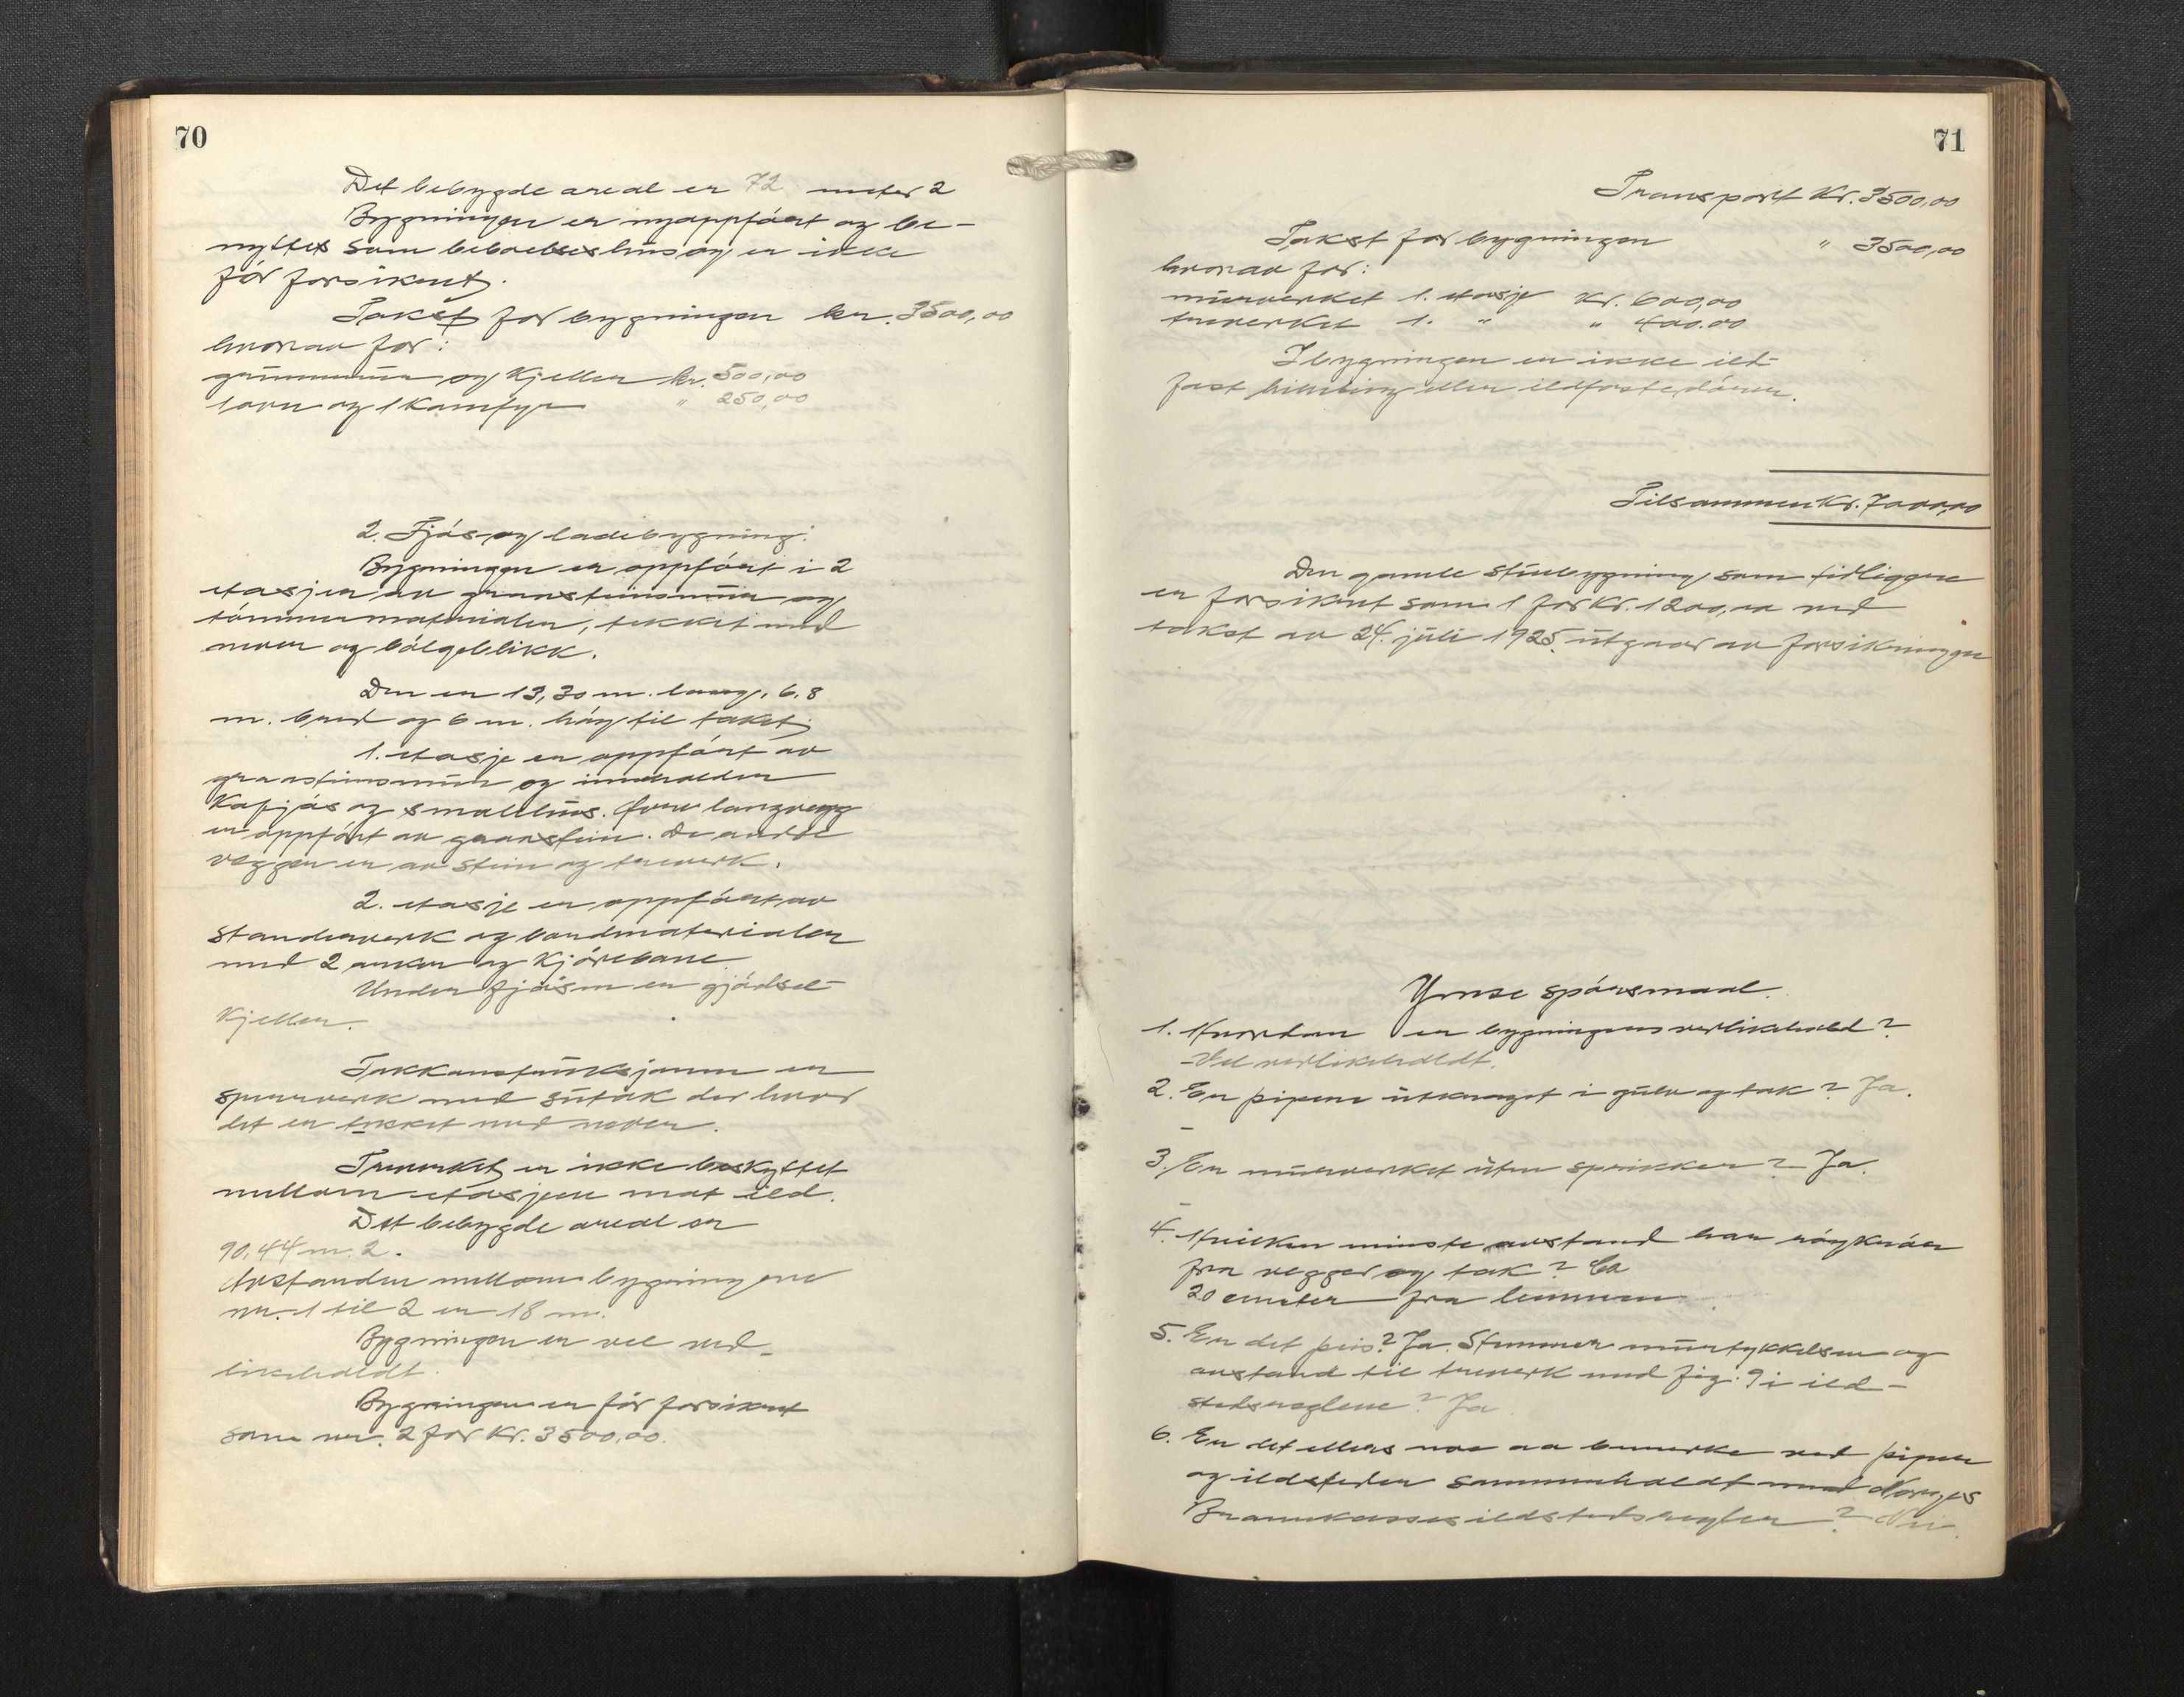 70
Det bebygde areal er 72 meter 2
Bygningen er nyoppført og be-
nyttes som beboelseshus og er ikke
før forsikret.
Takst for bygningen kr. 3500,00
hvorav for:
grunnmur og kjeller kr. 500,00
1 ovn og 1 Komfyr " 250,00
2. Fjøs og ladebygning.
Bygningen er oppført i 2
etasjer av graasteinsmur og
tømmermaterialer, tekket med
never og bølgeblikk.
Den er 13,30 m. lang, 6.8
m. bred og 6 m. høy til taket.
1. etasje er oppført av
graasteinsmur og inneholder
Kufjøs og smalehus. Øvre langvegg
er oppført av graastein. De andre
vegger er av stein og treverk.
2. etasje er oppført av
stenderverk og bordmaterialer
med 2 gulver og Kjørebane.
Under fjøsen er gjødsel-
Kjeller.
Takkonstruksjonen er
sperreverk med sutak der hvor
det er tekket med never.
Treverket er ikke beskyttet
mellom etasjene mot ild.
Det bebygde areal er
90,44 m. 2.
Avstanden mellom bygningene
nr. 1 til 2 er 18 m.
Bygningen er vel ved-
likeholdt.
Bygningen er før forsikret
som nr. 2 for Kr. 3500,00.
71
Transport Kr. 3500,00
Takst for bygningen " 3500,00
hvorav for:
murverket 1. etasje Kr. 600,00
treverket 1. " " 400.00
I bygningen er ikke ild-
fast himling eller ildfaste dører.
Tilsammen Kr. 7000,00
Den gamle stuebygning som tidligere
er forsikret som 1 for Kr. 1200,00 ved
takst av 24. juli 1925 utgaar av forsikringen
Ymse spørsmaal.
1. Hvordan er bygningens vedlikehold?
- Vel vedlikeholdt.
2. Er pipene utkraget i gulv og tak? Ja.
-
3. Er murverket uten sprekker? Ja.
-
4. Hvilken minste avstand har røykrør
fra vegger og tak? Ca
20 cmeter fra lemmen
5. Er det peis? Ja. Stemmer murtykkelsen og
avstand til treverk med fig. 9 i ild-
stedsreglene? Ja.
6. Er det ellers noe aa bemerke ved piper
og ildsteder sammenholdt med Norges
Brannkasses ildstedsregler? Nei.